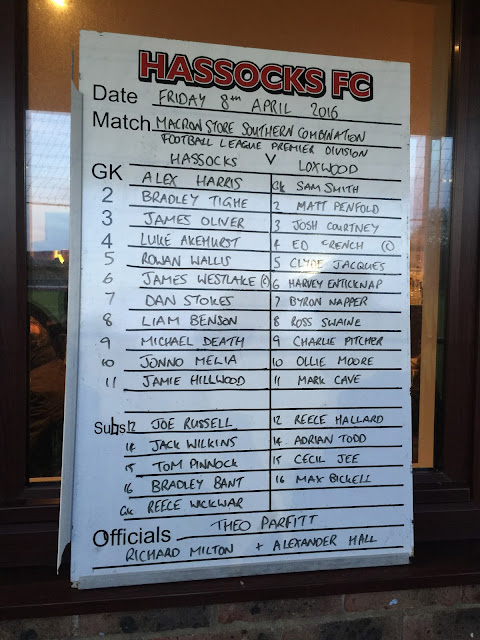 HASSOCKS FC
Date FRIDAY 8TH APRIL 2016
Match MACRON STORE SOUTHERN COMBINATION
FOOTBALL LEAGUE PREMIER DIVISION
HASSOCKS V LOXWOOD
GK ALEX HARRIS GK SAM SMITH
2 BRADLEY TIGHE 2 MATT PENFOLD
3 JAMES OLIVER 3 JOSH COURTNEY
4 LUKE AKEHURST 4 ED FRENCH (C)
5 ROWAN WALLIS 5 CLYDE JACQUES
6 JAMES WESTLAKE (C) 6 HARVEY ENTICKNAP
7 DAN STOKES 7 BYRON NAPPER
8 LIAM BENSON 8 ROSS SWAINE
9 MICHAEL DEATH 9 CHARLIE PITCHER
10 JONNO MELIA 10 OLLIE MOORE
11 JAMIE HILLWOOD 11 MARK CAVE
Subs 12 JOE RUSSELL 12 REECE HALLARD
14 JACK WILKINS 14 ADRIAN TODD
15 TOM PINNOCK 15 CECIL JEE
16 BRADLEY BANT 16 MAX BICKELL
GK REECE WICKWAR
Officials THEO PARFITT
RICHARD MILTON + ALEXANDER HALL